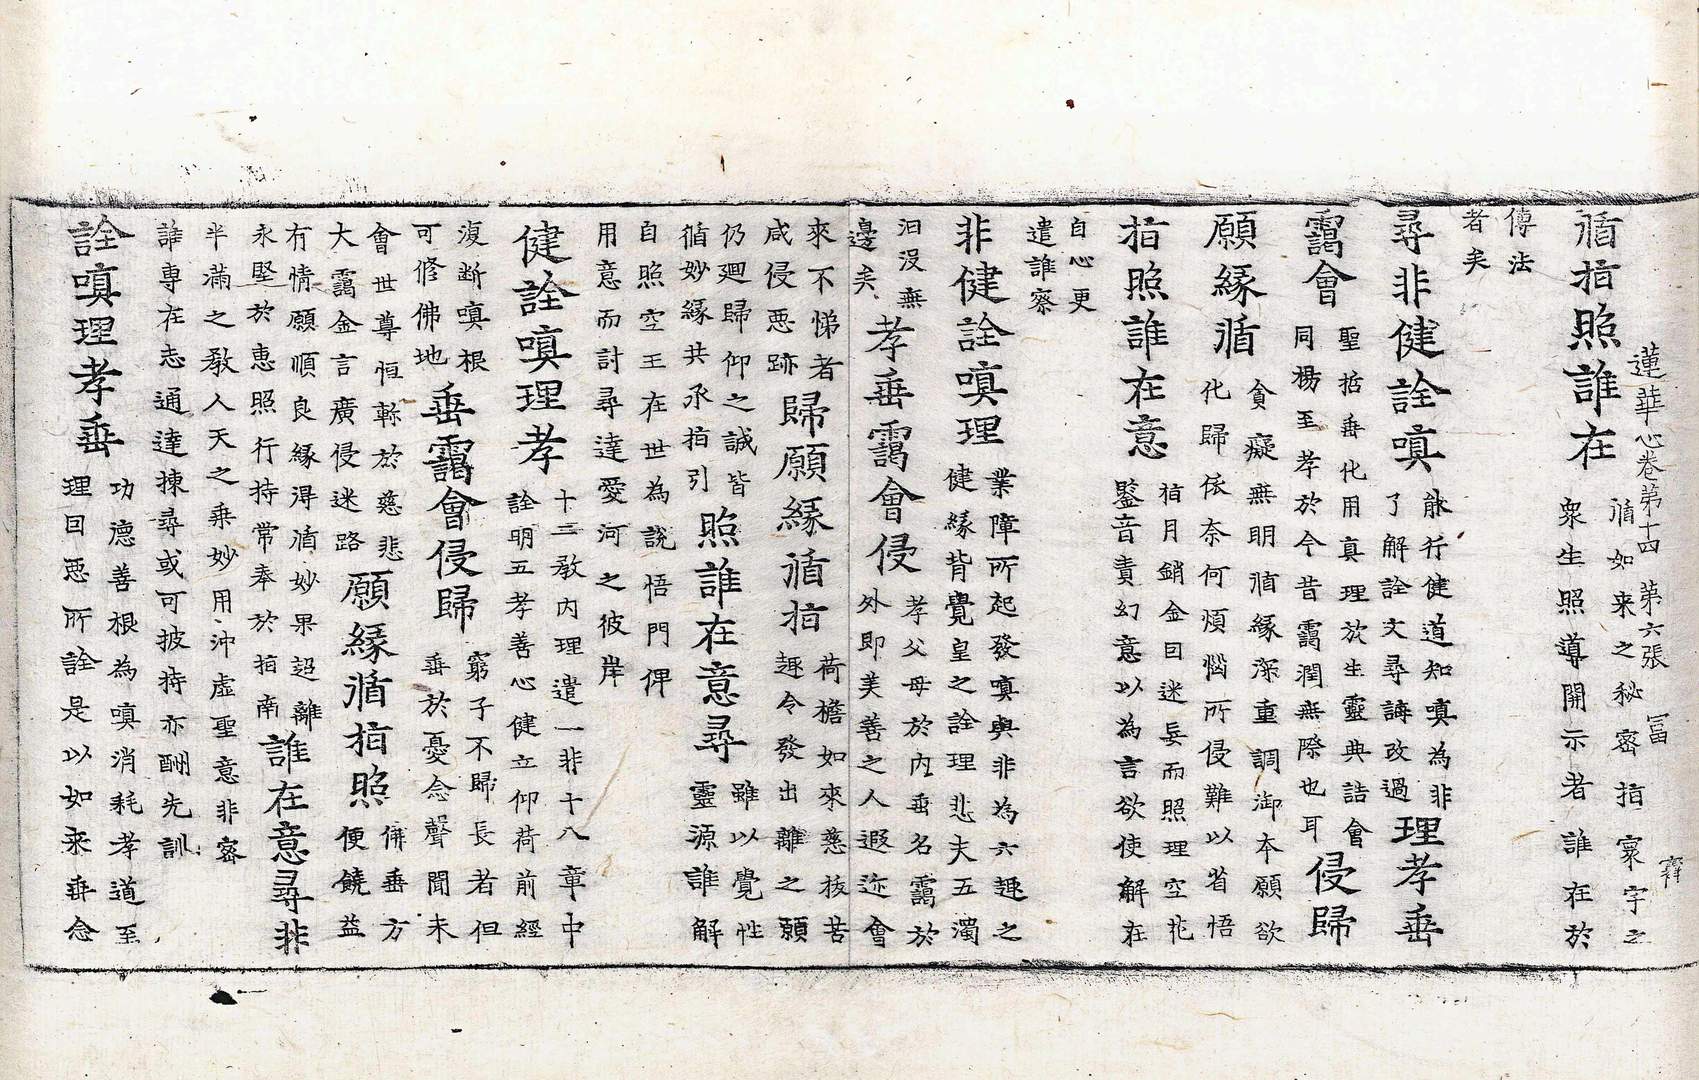 蓮華心卷第十四 第六張 冨
循指照誰在 循如来之秘密指寰宇之
衆生照導開示者誰在於
傳法
者矣
尋非健詮嗔 能行健道知嗔為非
了解詮文尋誨改過
理孝垂
靄會 聖哲垂化用真理放生靈典誥會
同楊至孝於今昔靄潤無際也耳
侵歸
願緣循 貪癡無明循緣深重調御本願欲
化歸依奈何煩惱所侵難以省悟
指照誰在意 指月銷金曰迷妄而照理空花
鑒音責幻意以為言欲使解在
自心更
遣誰察
非健詮嗔理 業障所起發嗔與非為六趣之
健緣背覺皇之詮理悲夫五濁
汩没無
邊矣
孝垂靄會侵 孝父母於内垂名靄於
外即美善之人遐迩會
來不悌者
咸侵悪跡
歸願緣循指 荷檐如來慈拔苦
趣令發出離之願
仍廻歸仰之誠皆
循妙緣共承指引
照誰在意尋 雖以覺性
靈源誰解
自照空王在世為說悟門俾
用意而討尋達愛河之彼岸
健詮嗔理孝 十三教内理遣一非十八章中
詮明五孝善心健立仰荷前經
復断嗔根
可修佛地
垂靄會侵歸 窮子不歸長者但
垂於憂念聲聞未
會世尊恒軫於慈悲
大靄金言廣侵迷路
願緣循指照 併垂方
便饒益
有情願順良緣淂循妙果迢離
永堅於恵照行持常奉於指南
誰在意尋非
半滿之教人天之乘妙用沖虚聖意非密
誰專在志通達揀尋或可披持亦酬先訓
詮嗔理孝垂 功德善根為嗔消耗孝道至
理曰悪所詮是以如来垂念